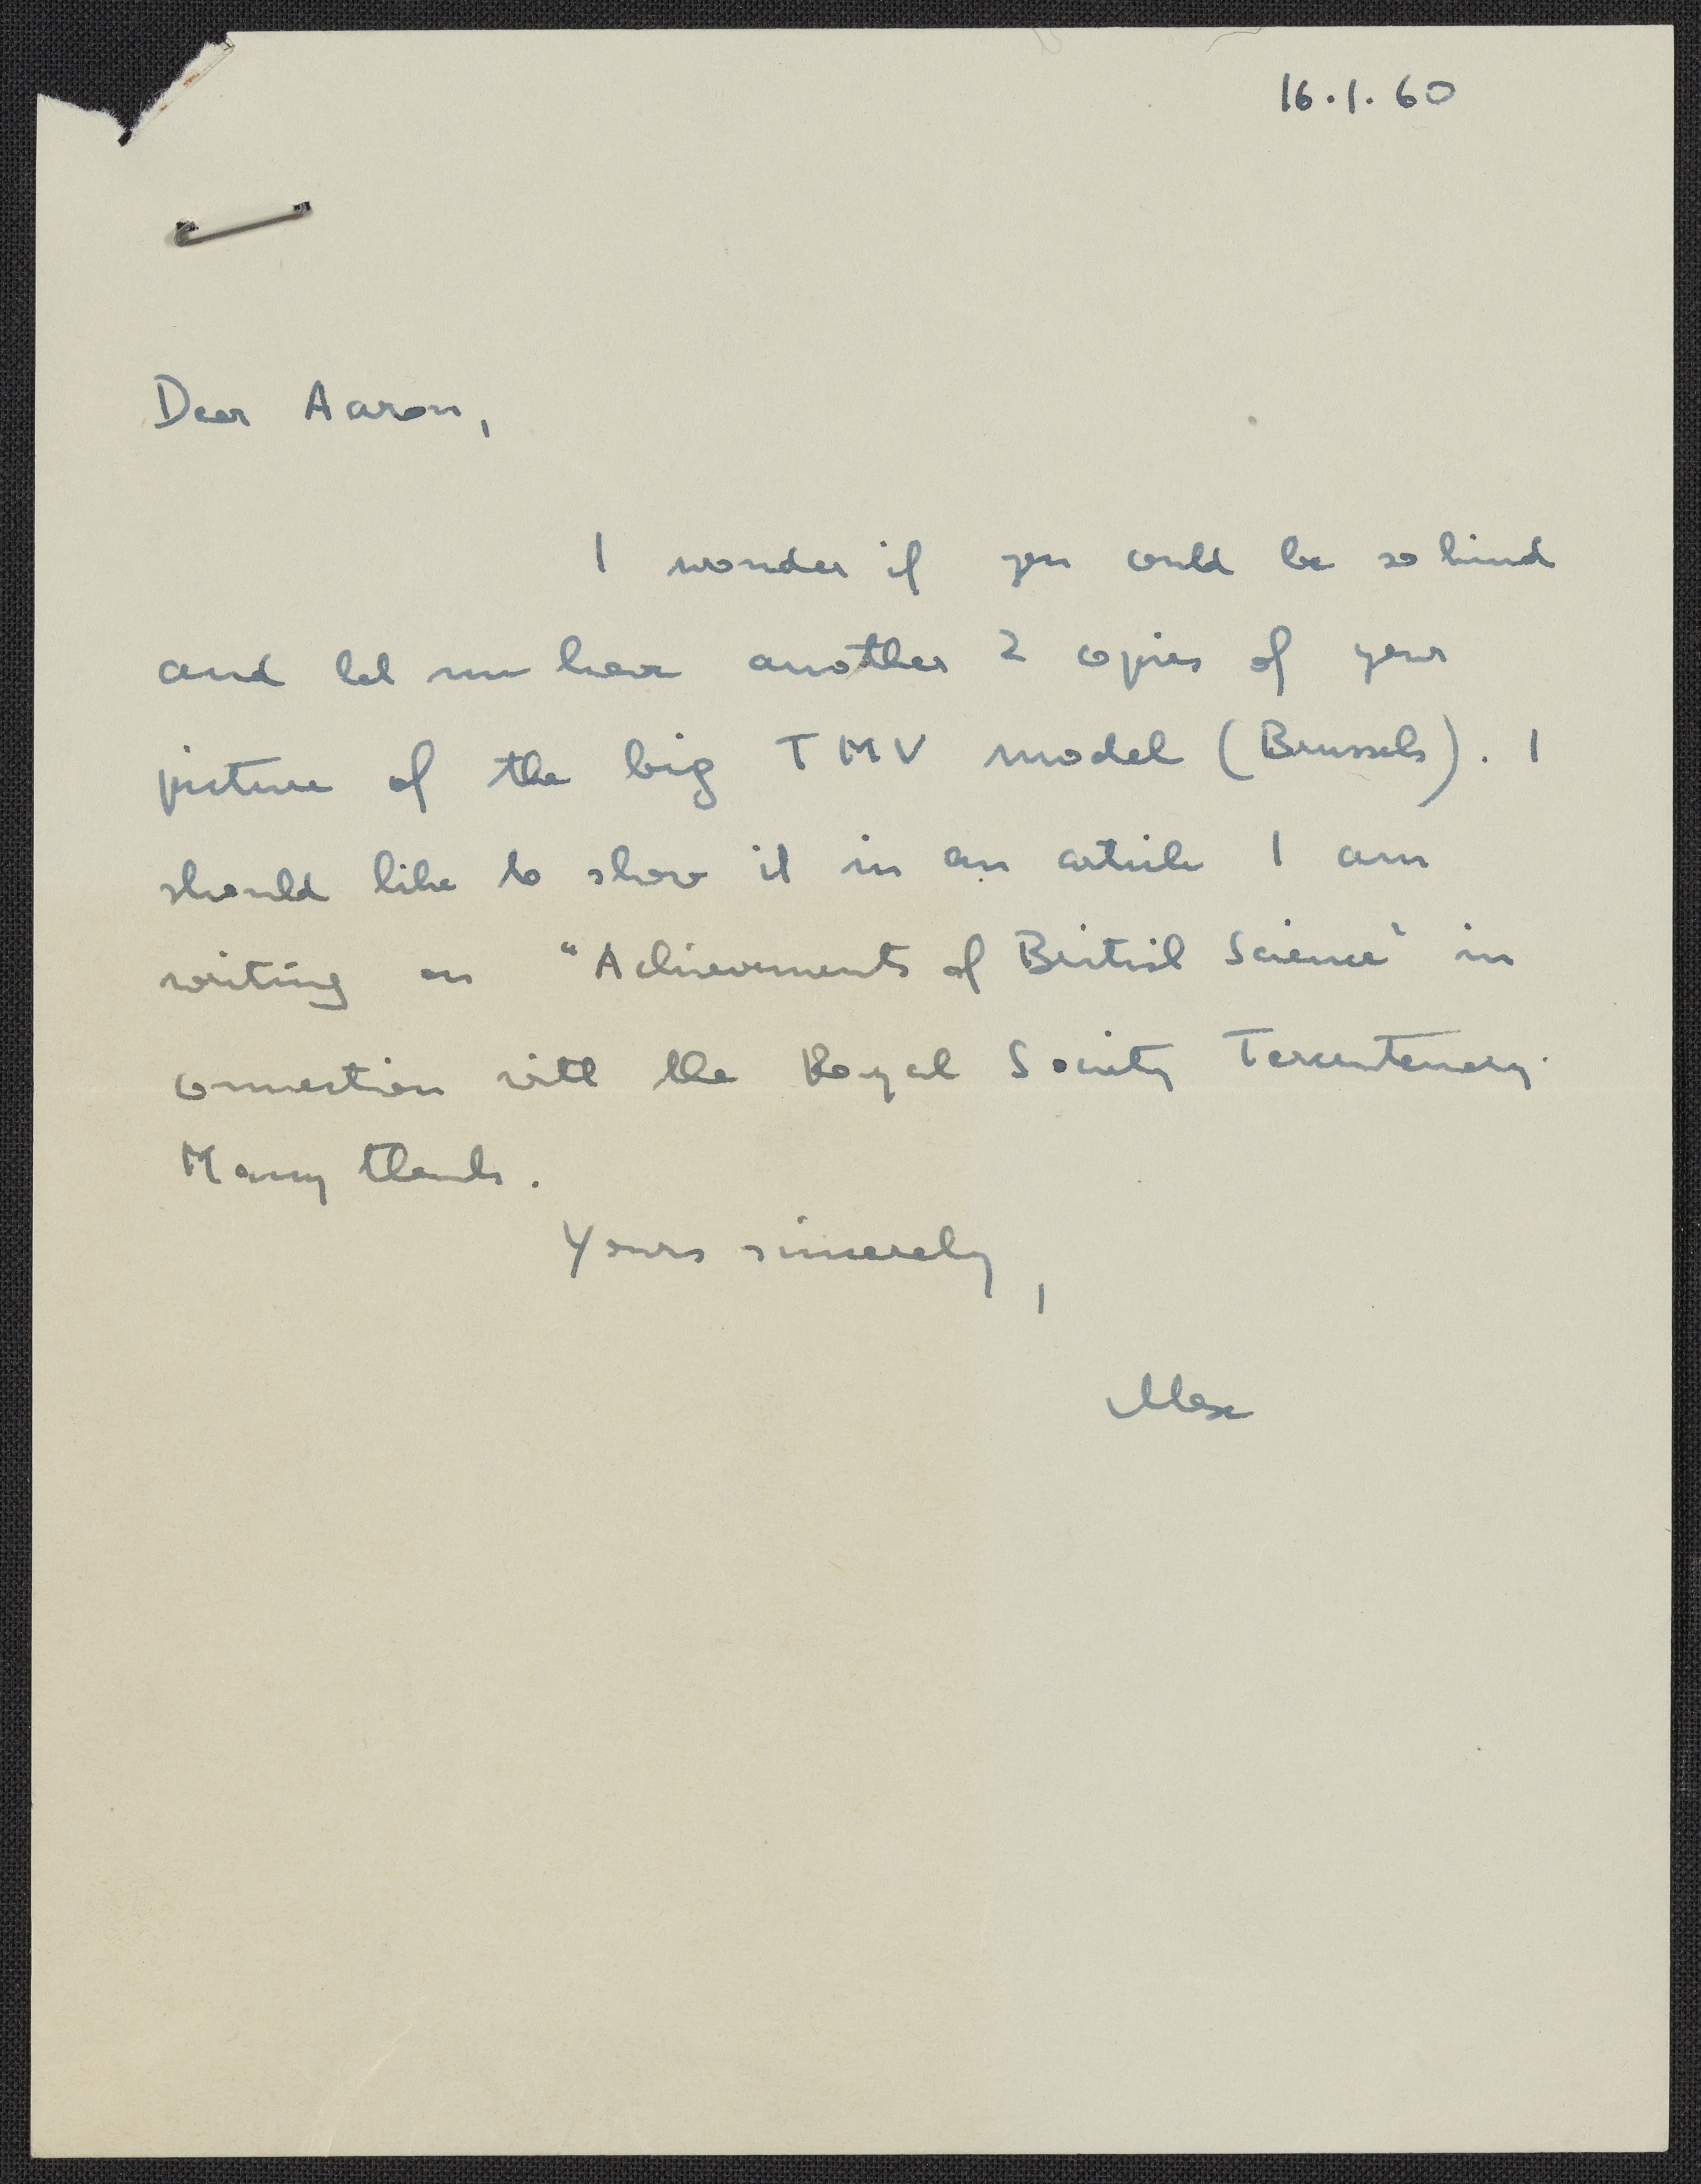 16.1.60
Dear Aaron,
I wonder if you could be so kind
and let me have another 2 copies of your
picture of the big TMV model (Brussels). I
should like to show it in an article I am
writing on "Achievements of British Science" in
connection with the Royal Society Tercentenary.
Many thanks.
Yours sincerely,
Max